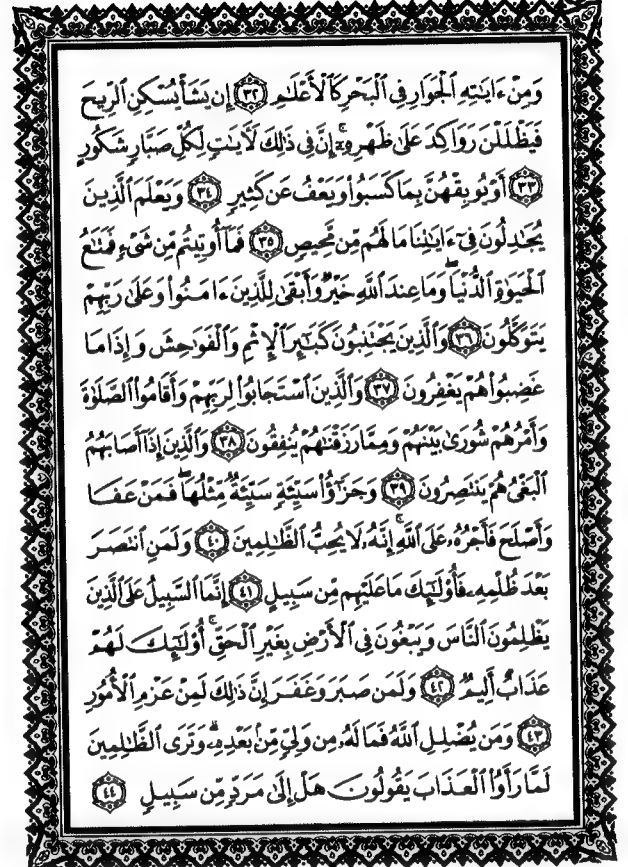 وَمِنْ ءَايَٰتِهِ ٱلْجَوَارِ فِى ٱلْبَحْرِ كَٱلْأَعْلَٰمِ ﴿٣٢﴾ إِن يَشَأْ يُسْكِنِ ٱلرِّيحَ
فَيَظْلَلْنَ رَوَاكِدَ عَلَىٰ ظَهْرِهِۦٓ ۚ إِنَّ فِى ذَٰلِكَ لَءَايَٰتٍ لِّكُلِّ صَبَّارٍ شَكُورٍ
﴿٣٣﴾ أَوْ يُوبِقْهُنَّ بِمَا كَسَبُوا۟ وَيَعْفُ عَن كَثِيرٍ ﴿٣٤﴾ وَيَعْلَمَ ٱلَّذِينَ
يُجَٰدِلُونَ فِىٓ ءَايَٰتِنَا مَا لَهُم مِّن مَّحِيصٍ ﴿٣٥﴾ فَمَآ أُوتِيتُم مِّن شَىْءٍ فَمَتَٰعُ
ٱلْحَيَوٰةِ ٱلدُّنْيَا ۖ وَمَا عِندَ ٱللَّهِ خَيْرٌ وَأَبْقَىٰ لِلَّذِينَ ءَامَنُوا۟ وَعَلَىٰ رَبِّهِمْ
يَتَوَكَّلُونَ ﴿٣٦﴾ وَٱلَّذِينَ يَجْتَنِبُونَ كَبَٰٓئِرَ ٱلْإِثْمِ وَٱلْفَوَٰحِشَ وَإِذَا مَا
غَضِبُوا۟ هُمْ يَغْفِرُونَ ﴿٣٧﴾ وَٱلَّذِينَ ٱسْتَجَابُوا۟ لِرَبِّهِمْ وَأَقَامُوا۟ ٱلصَّلَوٰةَ
وَأَمْرُهُمْ شُورَىٰ بَيْنَهُمْ وَمِمَّا رَزَقْنَٰهُمْ يُنفِقُونَ ﴿٣٨﴾ وَٱلَّذِينَ إِذَآ أَصَابَهُمُ
ٱلْبَغْىُ هُمْ يَنتَصِرُونَ ﴿٣٩﴾ وَجَزَٰٓؤُا۟ سَيِّئَةٍ سَيِّئَةٌ مِّثْلُهَا ۖ فَمَنْ عَفَا
وَأَصْلَحَ فَأَجْرُهُۥ عَلَى ٱللَّهِ ۚ إِنَّهُۥ لَا يُحِبُّ ٱلظَّٰلِمِينَ ﴿٤٠﴾ وَلَمَنِ ٱنتَصَرَ
بَعْدَ ظُلْمِهِۦ فَأُو۟لَٰٓئِكَ مَا عَلَيْهِم مِّن سَبِيلٍ ﴿٤١﴾ إِنَّمَا ٱلسَّبِيلُ عَلَى ٱلَّذِينَ
يَظْلِمُونَ ٱلنَّاسَ وَيَبْغُونَ فِى ٱلْأَرْضِ بِغَيْرِ ٱلْحَقِّ ۚ أُو۟لَٰٓئِكَ لَهُمْ
عَذَابٌ أَلِيمٌ ﴿٤٢﴾ وَلَمَن صَبَرَ وَغَفَرَ إِنَّ ذَٰلِكَ لَمِنْ عَزْمِ ٱلْأُمُورِ
﴿٤٣﴾ وَمَن يُضْلِلِ ٱللَّهُ فَمَا لَهُۥ مِن وَلِىٍّ مِّنۢ بَعْدِهِۦ ۗ وَتَرَى ٱلظَّٰلِمِينَ
لَمَّا رَأَوُا۟ ٱلْعَذَابَ يَقُولُونَ هَلْ إِلَىٰ مَرَدٍّ مِّن سَبِيلٍ ﴿٤٤﴾